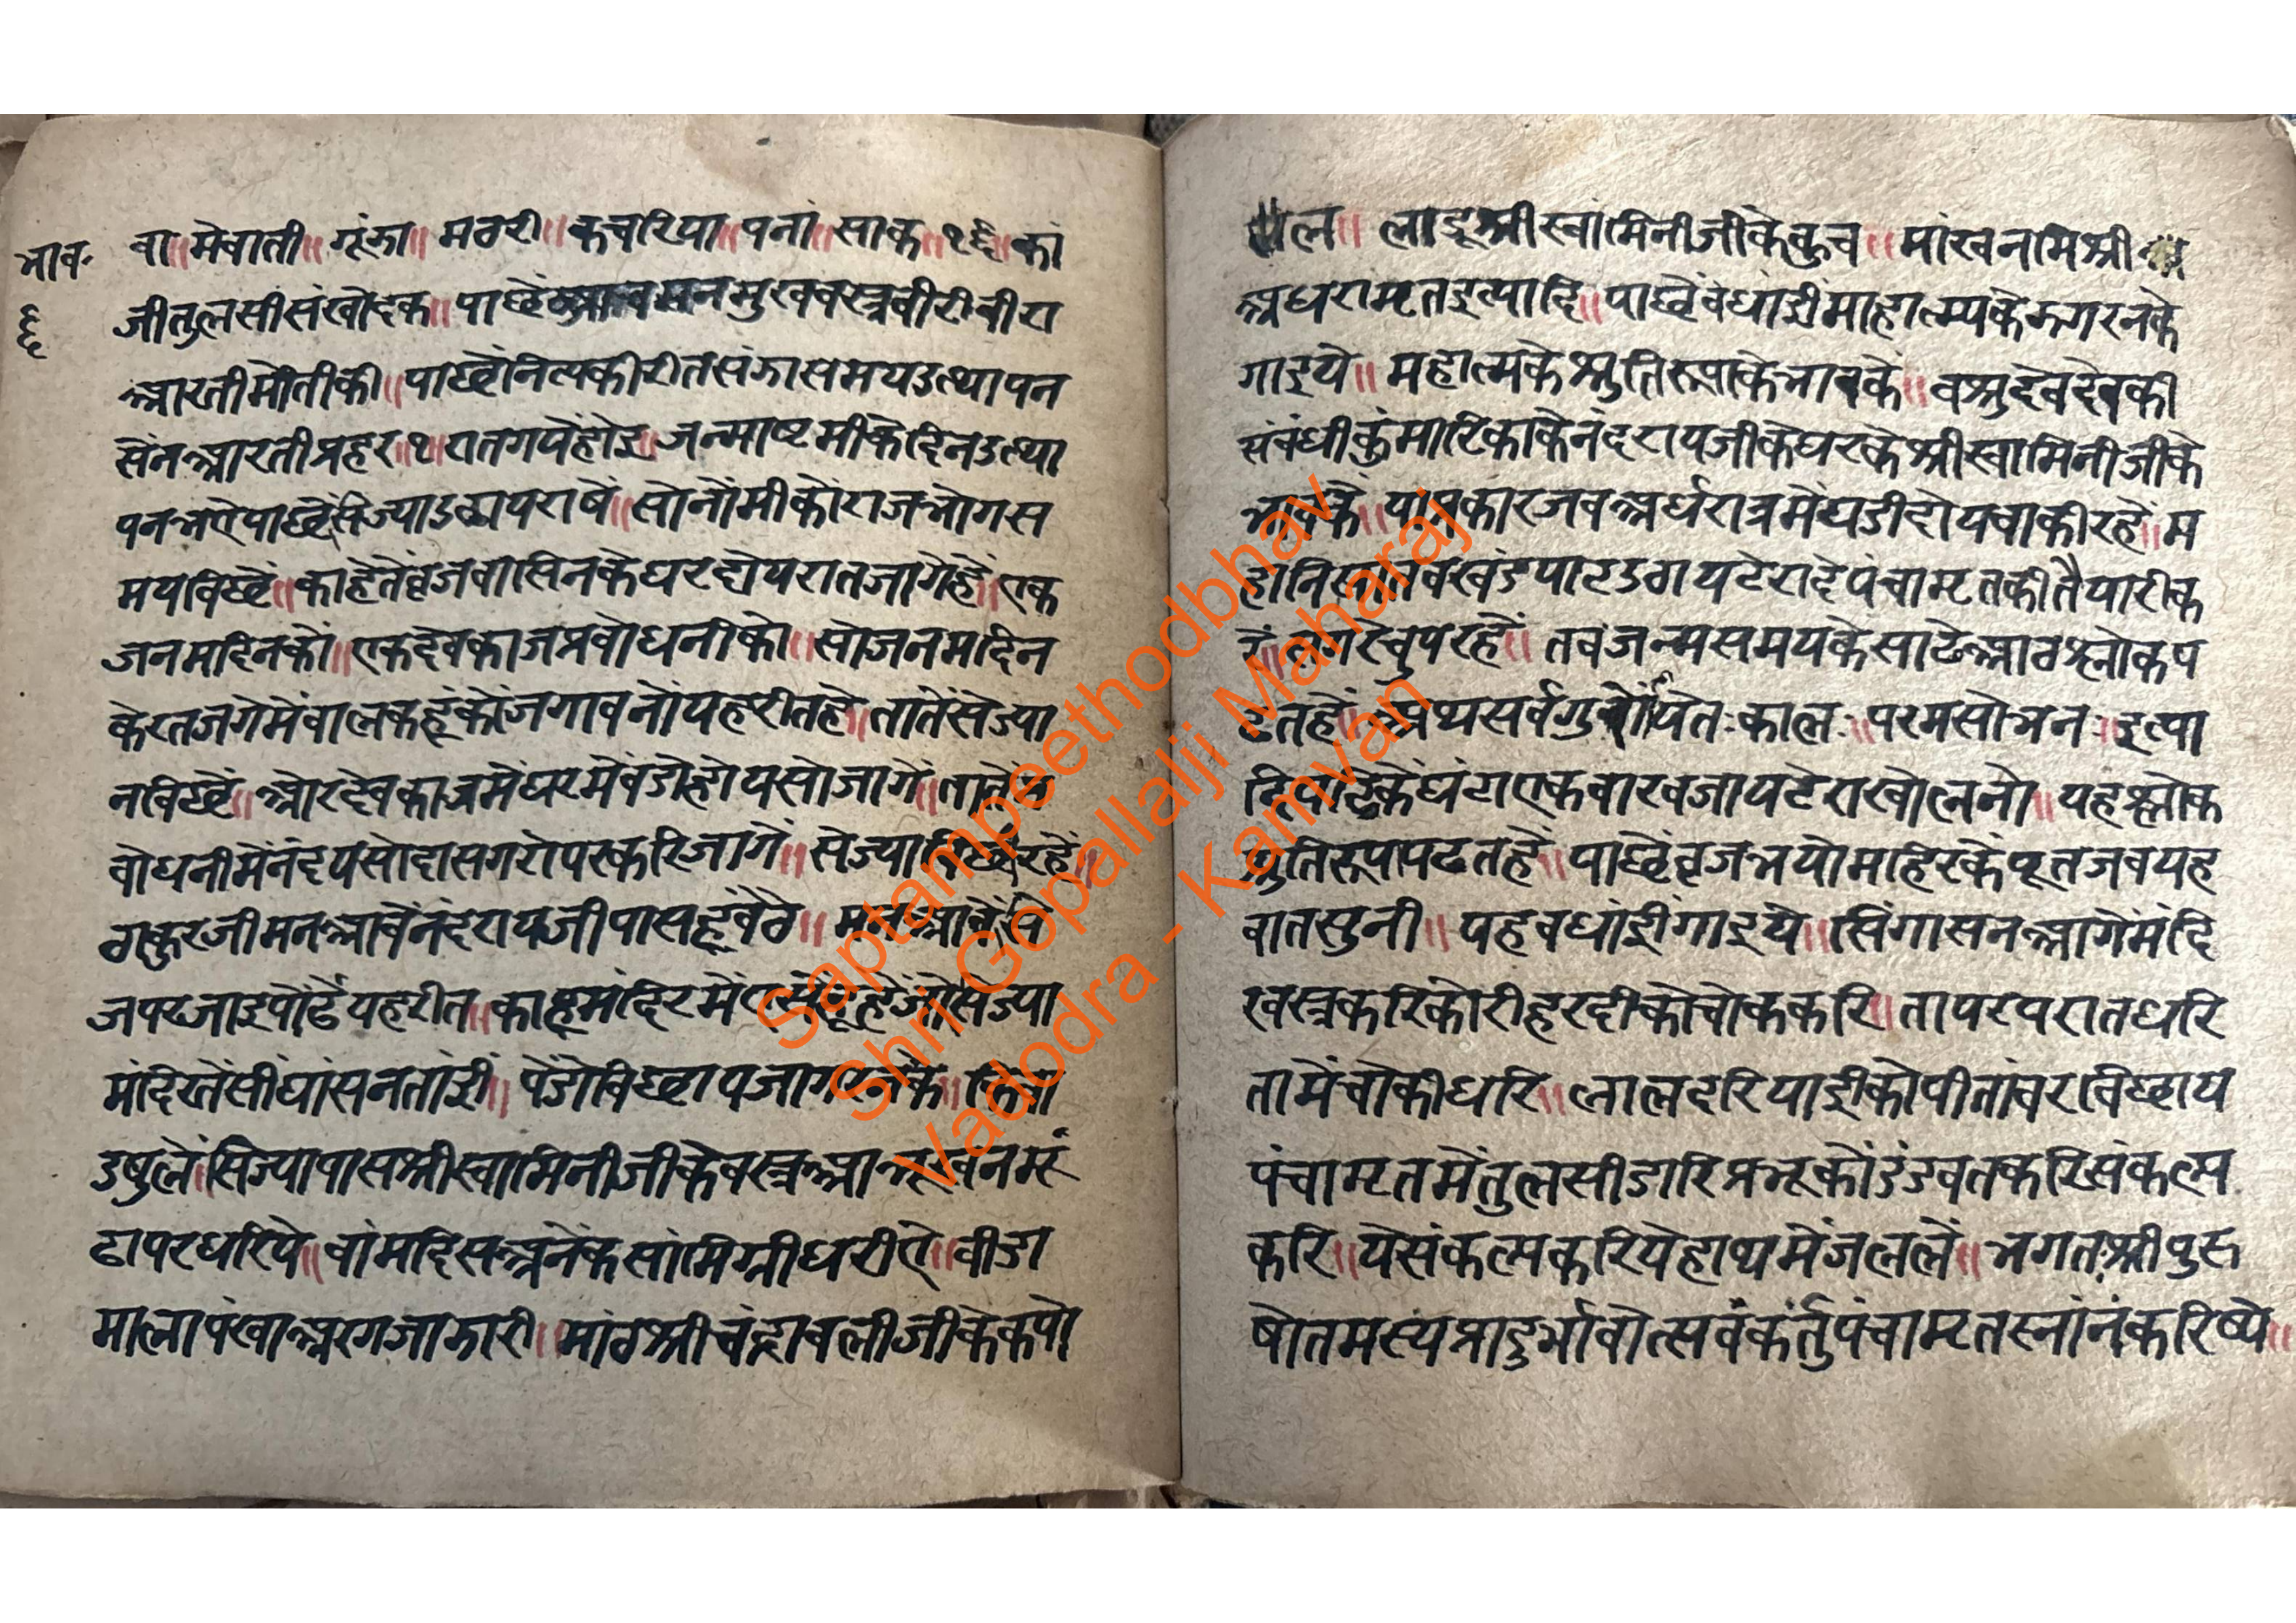 भाव॰
६
वा॥ मेवाती॥ गूंझा॥ मठरी॥ कचरिया॥ पना॥ साक॥ १६॥ कां
जीतुलसीसंखोदक॥ पाछें मुखवस्त्रबीरीबीरा
आरतीमोतीकी॥ पाछेंनित्यकीरीतसंझासमयउत्थापन
सेंनआरतीप्रहर॥१॥रातगयेंहोइ॥ जन्माष्टमीकेदिनउत्था
पनभऐपाछेंसेज्याउठायराषें॥ सोनौमीकोराजभोगस
मयबिछें॥ काहेतेंव्रजवासिनकेघरद्योयरातजागेहें॥ एक
जनमदिनकों॥ एकदेवकाजप्रबोधनीको॥ सोजनमदिन
केरतजगेमेंबालकहूंकोंजगावनोंयहरीतहे॥ तातेंसेज्या
नबिछें॥ ओरदेवकाजमेंघरमेंबडोहोयसोजागें॥
बोधनीमेंनंदयसोदासगरोपरकरिजागें॥ सेज्या रहें॥
ठाकुरजीमनआवेंनंदरायजीपासहूंबैठें॥ मनआवेंसे
जपरजाइपोंढेंयहरीत॥ काहूमंदिरमें
मंदिरतेंसींघांसनतांईं॥ पेंडोबिछायजागरनके॥
उषुलें॥सिज्यापासश्रीस्वामिनीजीकेवस्त्रआभूखनमूं
ढापरधरिये॥ वांमदिसअनेंकसांमिग्रीधरीऐ॥ बीडा
मालापंखाअरगजाझारी॥ मांठश्रीचंद्रावलीजीकेकपो
ल॥ लाडूश्रीस्वामिनीजीकेकुच॥ मांखनमिश्री
अधरामृतइत्यादि॥ पाछेंबंधाईमाहात्म्यकेझगरनके
गाइये॥ महात्मकेश्रुतिरूपाकेभावकें॥ वश्रुदेवदेवकी
संबंधीकुंमारिकाकेनंदरायजीकेघरकेश्रीस्वामिनीजीके
भावकें॥ याप्रकारजबअर्धरात्रमेंघडीदोयबाकीरहें॥ म
पाटउठायटेरादेपंचामृतकीतैयारीक
रहें॥ तबजन्मसमयकेसाढेआठश्लोकप
ढतहें॥ अथसर्वगुणोपेतःकालः॥ परमसोभनः॥ इत्या
दिपाठकेंघंटाएकबारबजायटेराखोलनो॥ यहश्लोक
श्रुतिरूपापढतहें॥ पाछेंव्रजभयोमहिरकेंपूतजबयह
बातसुनी॥ यहबधांईगाइये॥ सिंगासनआगेंमंदि
रवस्त्रकरिकोरीहरदीकोचोककरि॥ तापरपरातधरि
तामेंचोकीधरि॥ लालदरियाईकोपीतांबरबिछाय
पंचामृतमेंतुलसीडारिप्रभूकोंडंडवतकरिसंकल्प
करि॥ येसंकल्पकरियेहाथमेंजललें॥ भगतःश्रीपुरु
षोतमस्यप्रादुर्भावोत्सवंकर्तुंपंचामृतस्नांनंकरिष्ये॥
Saptampeethodbhav
Shri Gopallalji Maharaj
Vadodra - Kamvan